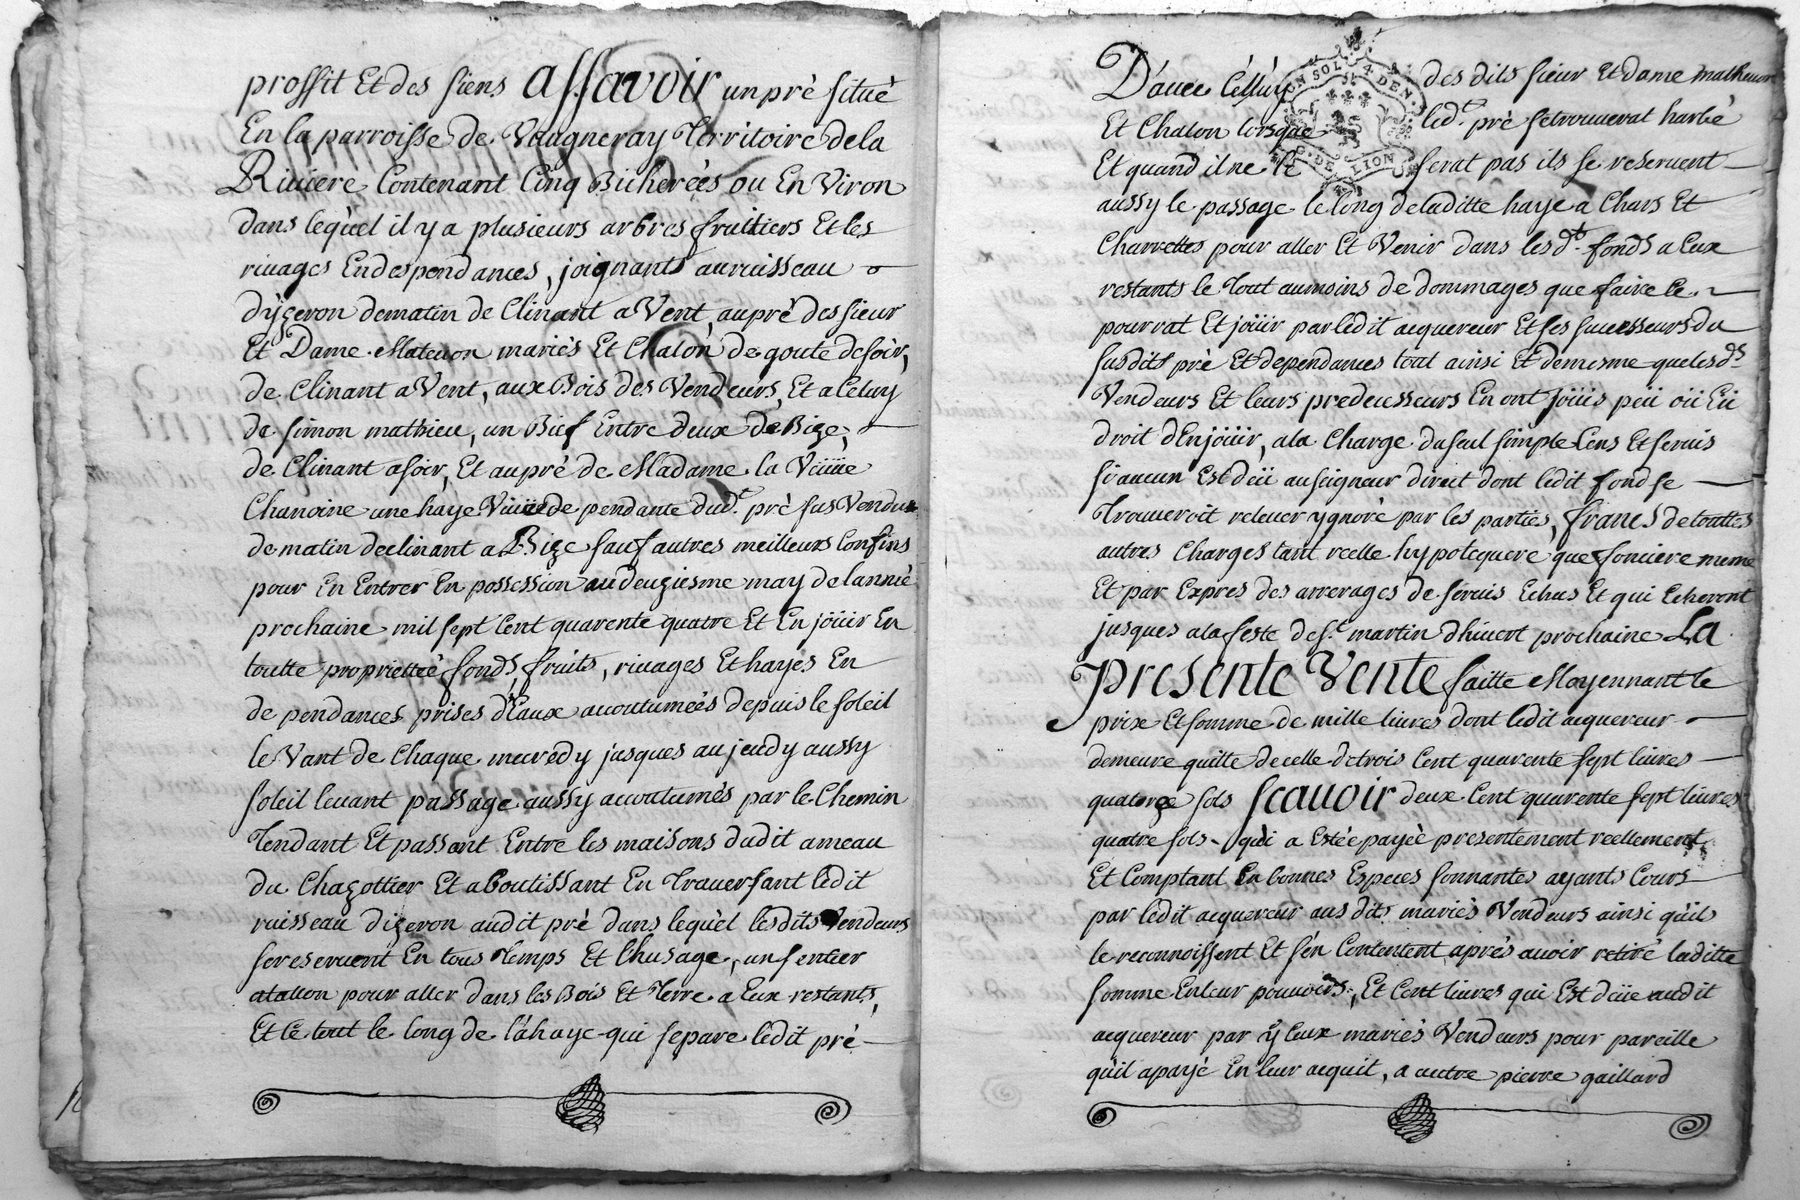 proffit Et des siens assavoir un pré situé
En la parroisse de Vaugneray Territoire de la
Riuiere Contenant Cinq Bicherées ou En Viron
dans leq'uel il y a plusieurs arbres fruitiers Et les
riuages En despendances, joignants au ruisseau
d'yzeron de matin de Clinant a Vent, au pré des sieur
Et Dame Mateuon mariés Et Chalon de goute de soir,
de Clinant a Vent, aux Bois des Vendeurs, Et a Celuy
de simon mathieu, un Bief Entre deux de Bize,
de Clinant a soir, Et au pré de Madame la Veüue
Chanoine une haye Viue de pendante dud.t pré sus Vendu
de matin declinant a Bize sauf autres meilleurs Confins
pour En Entrer En possession au deuziesme may de lanneé
prochaine mil sept Cent quarente quatre Et En joüir En
toutte proprietteé fonds, fruits, riuages Et hayes En
de pendances prises d'Eaux accoutumeés depuis le soleil
le Vant de Chaque mecredy jusques au jeudy aussy
soleil leuant passage aussy accoutumés par le Chemin
Tendant Et passant Entre les maisons dudit ameau
du Chazottier Et aboutissant En Trauersant ledit
ruisseau dizeron audit pré dans leq'uel lesdits Vendeurs
se reseruent En tous Temps Et Chusage, un sentier
atallon pour aller dans les Bois Et Terre a Eux restants,
Et le tout le long de l'ahaye qui separe ledit pré
D'auec Celluy des dits sieur Et dame matheuon
Et Chalon lorsque led.t pré se trouuerat harbé
Et quand il ne le serat pas ils se reseruent
aussy le passage le long de laditte haye a Chars Et
Charrettes pour aller Et Venir dans lesd.ts fonds a Eux
restants le Tout au moins de dommages que faire le
pourrat Et joüir par ledit acquereur Et ses successeurs du
susdits pré Et dependances tout ainsi Et de mesme que lesd.ts
Vendeurs Et leurs predecesseurs En ont joüis peü oü Eü
droit d'En joüir, a la Charge du seul simple Cens Et seruis
si aucun Est deü au seigneur direct dont ledit fond se
Trouueroit releuer ygnoré par les parties, francs de touttes
autres Charges tant reelle hypotequere que fonciere meme
Et par Expres des arrerages de seruis Echus Et qui Echeront
jusques a la feste de s.t martin d'hiuert prochaine La
presente Vente faitte Moyennant le
prix Et somme de mille liures dont ledit acquereur
demeure quitte de celle de trois Cent quarente sept liures
quatorze sols scauoir deux Cent quarente sept liures
quatre sols q'ui a Esteé payeé presentement reellement
Et Comptant En bonnes Especes sonnantes ayants Cours
par ledit acquereur aus dits mariés Vendeurs ainsi qu'ils
le reconnoissent Et s'en Contentent aprés auoir retiré laditte
somme En leur pouuoirs, Et Cent liures qui Est deüe audit
acquereur par yceux mariés Vendeurs pour pareille
qu'il a payé En leur acquit, a autre pierre gaillard
UN SOL 4 DEN.
G. DE LION